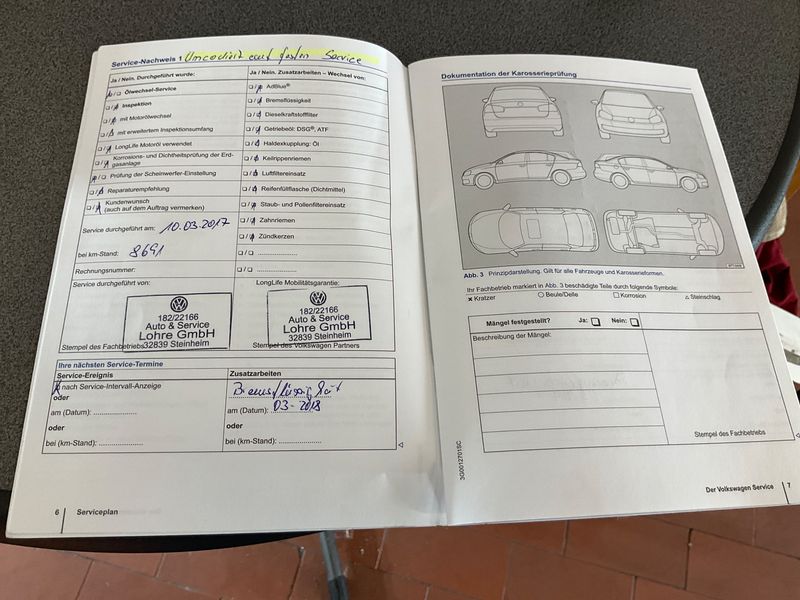 Service-Nachweis 1 Umcodiert auf festen Service
Ja / Nein. Durchgeführt wurde:
Ölwechsel-Service
Inspektion
mit Motorölwechsel
mit erweitertem Inspektionsumfang
LongLife Motoröl verwendet
Korrosions- und Dichtheitsprüfung der Erd-
gasanlage
Prüfung der Scheinwerfer-Einstellung
Reparaturempfehlung
Kundenwunsch
(auch auf dem Auftrag vermerken)
Service durchgeführt am: 10.03.2017
bei km-Stand: 8691
Rechnungsnummer:
Service durchgeführt von:
182/22166
Auto & Service
Lohre GmbH
32839 Steinheim
Stempel des Fachbetriebs
Ja / Nein. Zusatzarbeiten – Wechsel von:
AdBlue®
Bremsflüssigkeit
Dieselkraftstofffilter
Getriebeöl: DSG®, ATF
Haldexkupplung: Öl
Keilrippenriemen
Luftfiltereinsatz
Reifenfüllflasche (Dichtmittel)
Staub- und Pollenfiltereinsatz
Zahnriemen
Zündkerzen
LongLife Mobilitätsgarantie:
182/22166
Auto & Service
Lohre GmbH
32839 Steinheim
Stempel des Volkswagen Partners
Ihre nächsten Service-Termine
Service-Ereignis
nach Service-Intervall-Anzeige
oder
am (Datum): ..................
oder
bei (km-Stand): ..................
Zusatzarbeiten
Bremsflüssigkeit
am (Datum): 03-2018
oder
bei (km-Stand): ..................
6 Serviceplan
Dokumentation der Karosserieprüfung
Abb. 3 Prinzipdarstellung. Gilt für alle Fahrzeuge und Karosserieformen.
Ihr Fachbetrieb markiert in Abb. 3 beschädigte Teile durch folgende Symbole:
Kratzer
Beule/Delle
Korrosion
Steinschlag
Mängel festgestellt? Ja: Nein:
Beschreibung der Mängel:
Stempel des Fachbetriebs
3G0012701SC
Der Volkswagen Service 7